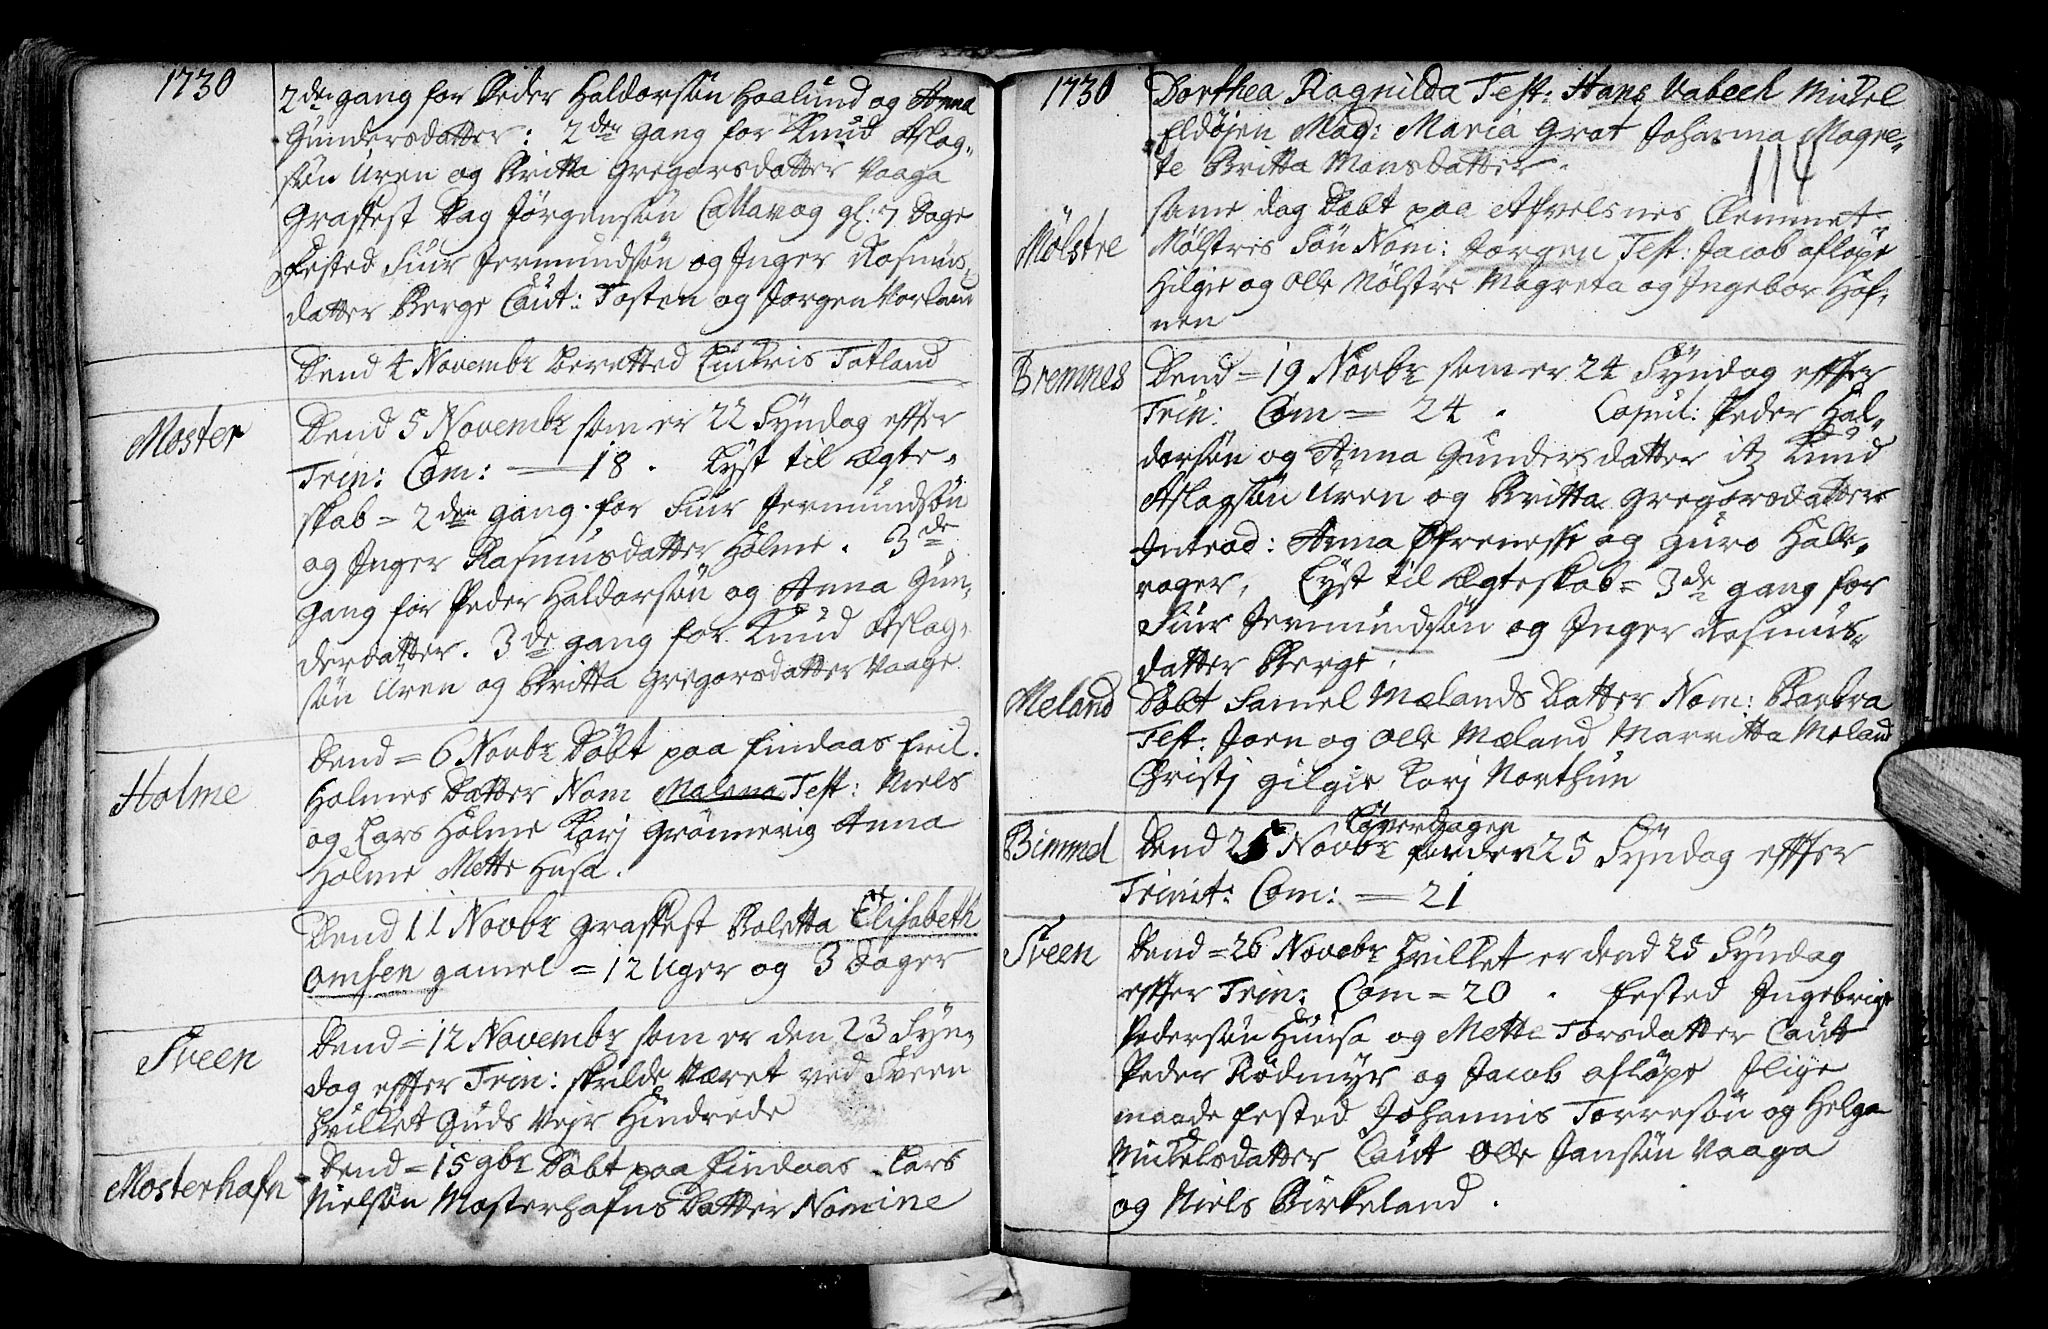 1730
2den gang for Peder Haldorsøn Haalund og Anna
Gundersdatter: 2den gang for Knud Aslag-
søn Uren og Britta Gregorsdatter Vaaga
Graffest Dag Jørgensøn Callavog gl: 7 Dage
Fested Siur Jermundsøn og Inger Rasmus-
datter Berge Caut: Tosten og Jørgen Vorland
Dend 4 Novembr beretted Lindris Totland
Moster
Dend 5 Novembr som er 22 Syndag effter
Trin: Com: — 18. Lyst til Ægte-
skab = 2den gang for Siur Jermundsøn
og Inger Rasmusdatter Holme. 3de
gang for Peder Haldorsøn og Anna Gun-
derdatter. 3de gang for Knud Aslag-
søn Uren og Britta Gregorsdatter Vaage
Holme
Dend = 6 Novbr Døbt paa Findaas Eril.
Holmes Datter Nom Malena Test: Niels
og Lars Holme Karj Grønnevig Anna
Holme Mette Husa.
Dend 11 Novbr graffest Boletta Elisabeth
omsen gamel = 12 Uger og 3 Dager
Sveen
Dend = 12 Novembr som er den 23 Syn-
dag effter Trin: skulde Været ved Sveen
hvilket Guds Vejr Hindrede
Mosterhafn
Dend = 15 9br Døbt paa Findaas Lars
Nielsøn Mosterhafns Datter Nomine
1730
Dorthea Ragnilda Test: Hans Vabeel Mickel
Eldøjen Mad: Maria Grot Johanna Magre-
te Britta Monsdatter.
114
Mølstre
same dag Døbt paa Afvelsnes Clemmet
Mølstres Søn Nom: Jørgen Test: Jacob afløpe
Hilgie og Olle Mølstre Magreta og Ingebor Haf-
nen
Bremnes
Dend = 19 Novbr som er 24 Syndag effter
Trin: Com = 24. Copul: Peder Hal-
dorsøn og Anna Gundersdatter it Knud
Aslagsøn Uren og Britta Gregorsdatter
Introd: Anna Øfrenesse og Guro Halle-
rager. Lyst til Ægteskab = 3de gang for
Siur Jermundsøn og Inger Rasmus-
datter Berge.
Meland
Døbt Samel Mælands Datter Nom: Barbra
Test: Joen og Olle Mæland Marritta Meland
Christj Gilgie Karj Northun
Bimmel
Løverdagen
Dend 25 Novbr for den 25 Syndag effter
Trinit: Com: = 21
Sveen
Dend = 26 Novebr hvilket er dend 25 Syndag
effter Trin: Com = 20. Fested Ingebrigt
Pedersøn Huusa og Mette Torsdatter Caut
Peder Rødmyr og Jacob afløpe Ilige
maade fested Johannis Torresøn og Helga
Mickelsdatter Caut Olle Jansøn Vaaga
og Niels Birkeland.